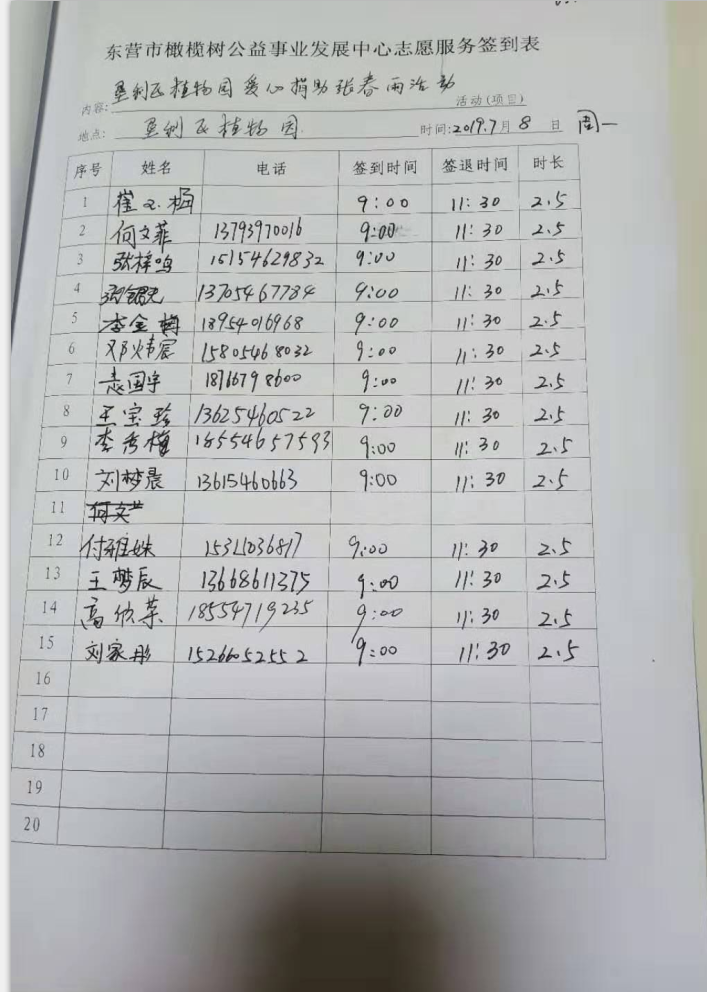 东营市橄榄树公益事业发展中心志愿服务签到表
内容: 垦利区植物园爱心捐助张春雨活动 活动(项目)
地点: 垦利区植物园 时间:2019.7月8日 周一
序号 姓名 电话 签到时间 签退时间 时长
1 9:00 11:30 2.5
2 何文菲 13793970016 9:00 11:30 2.5
3 张梓鸣 15154629832 9:00 11:30 2.5
4 13705467784 9:00 11:30 2.5
5 18954016968 9:00 11:30 2.5
6 邓炜宸 15805468032 9:00 11:30 2.5
7 袁国宇 18766798600 9:00 11:30 2.5
8 王宝珍 13625460522 9:00 11:30 2.5
9 李秀梅 18554657593 9:00 11:30 2.5
10 刘梦晨 13615460663 9:00 11:30 2.5
11
12 付雅姝 9:00 11:30 2.5
13 王梦辰 13668611375 9:00 11:30 2.5
14 高欣荣 18554719235 9:00 11:30 2.5
15 刘家彤 15266052552 9:00 11:30 2.5
16
17
18
19
20